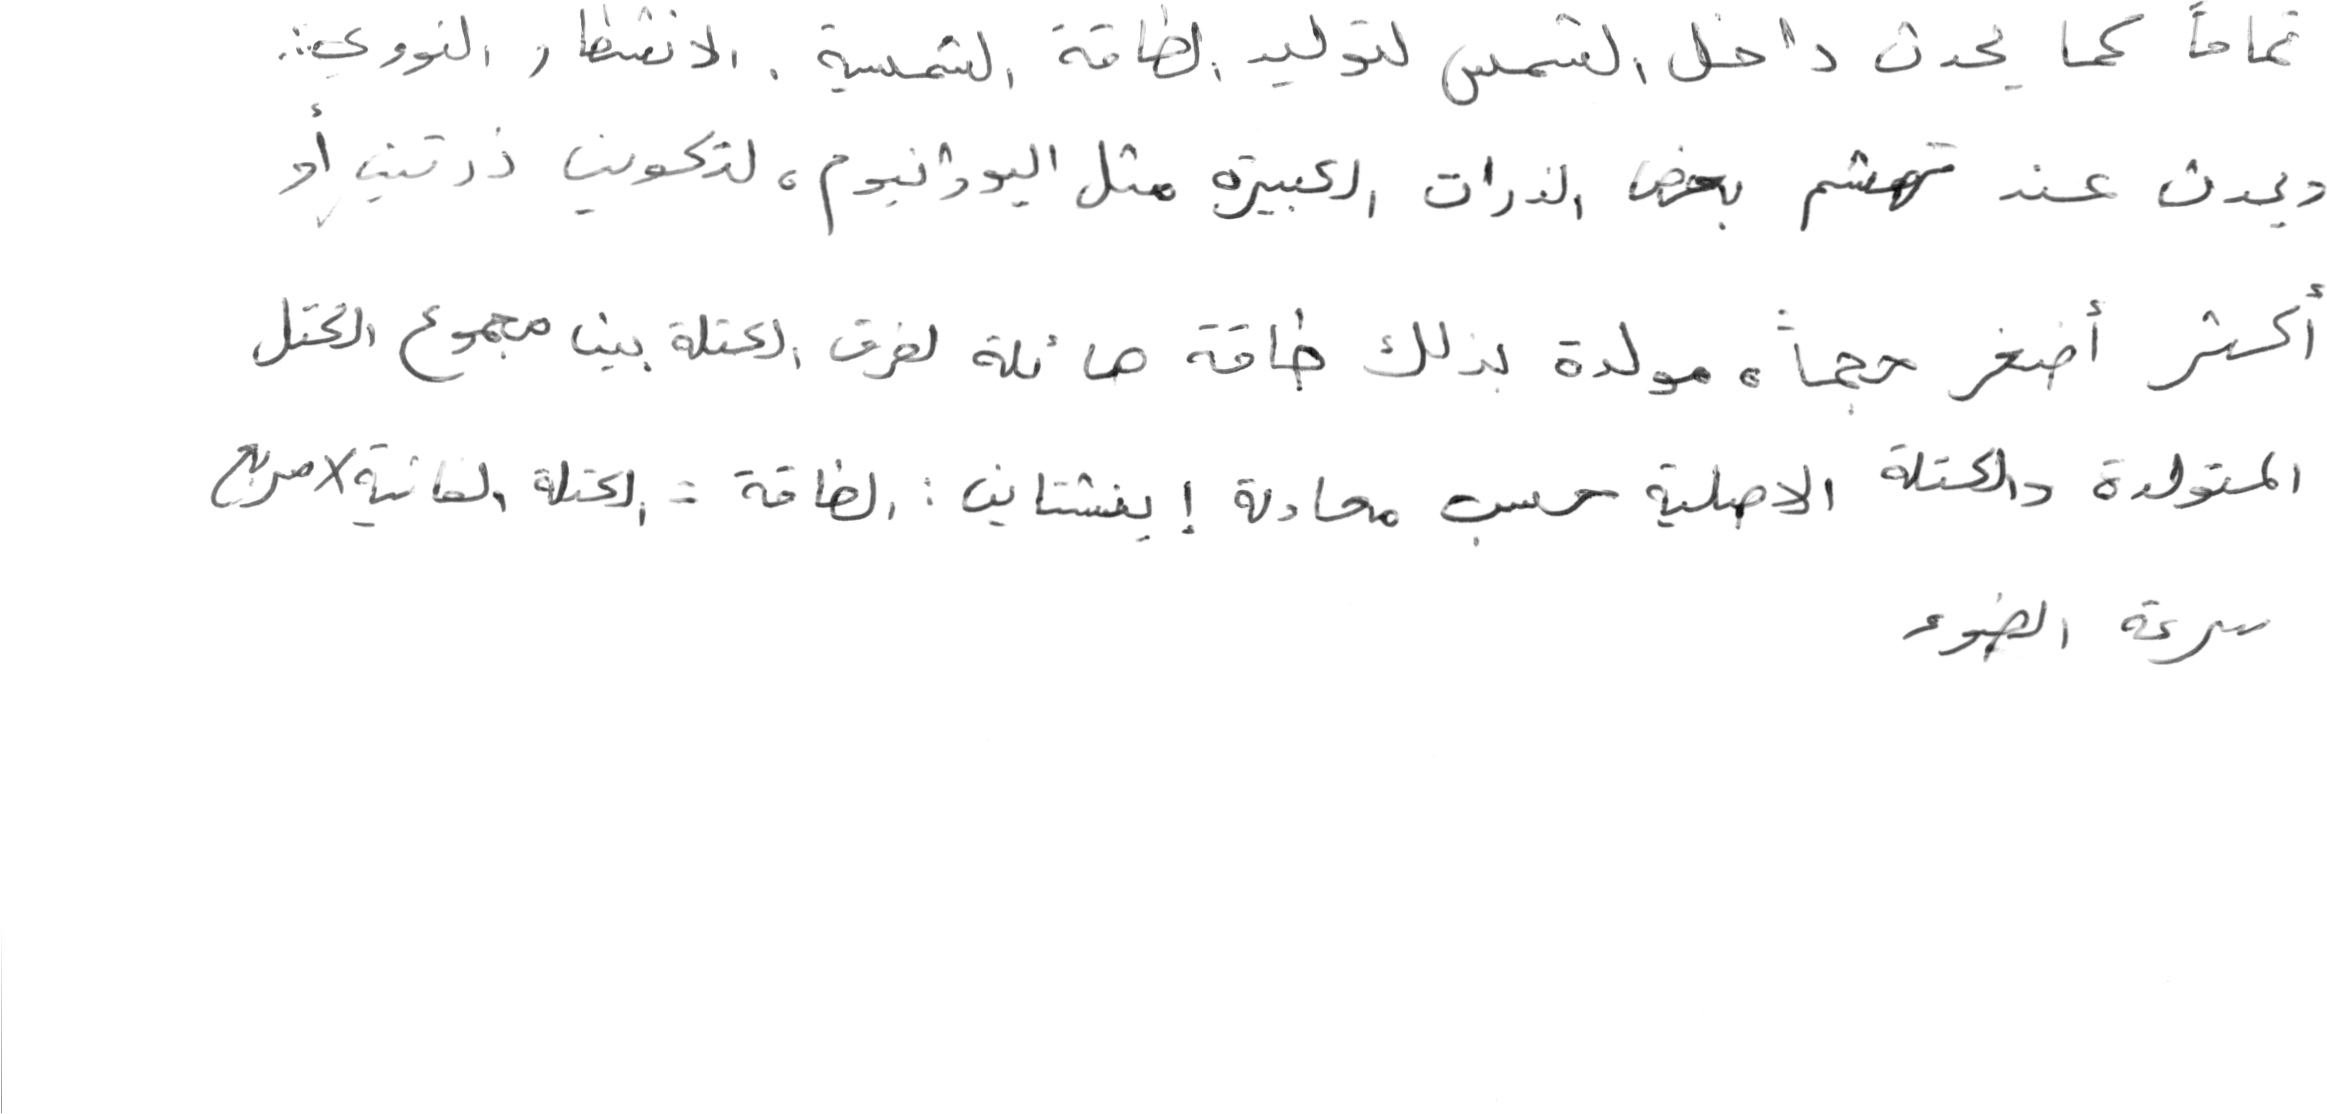 تماماً كما يحدث داخل الشمس لتوليد الطاقة الشمسية . الانشطار النووي :
ويحدث عند تهشم بعض الذرات الكبيرة مثل اليورانيوم ، لتكوين ذرتين أو
أكثر أصغر حجماً ، مولدة بذلك طاقة هائلة لفرق الكتلة بين مجموع الكتل
المتولدة والكتلة الاصلية حسب معادلة إينشتاين : الطاقة = الكتلة الفانية × مربع
سرعة الضوء